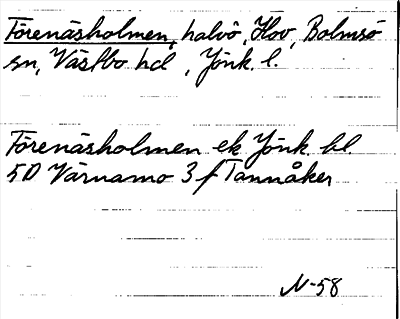 Förenäsholmen, halvö, Hov, Bolmsö
sn, Västbo hd, Jönk. l.
Förenäsholmen ek Jönk. bl.
5D Värnamo 3 f Tannåker
N-58